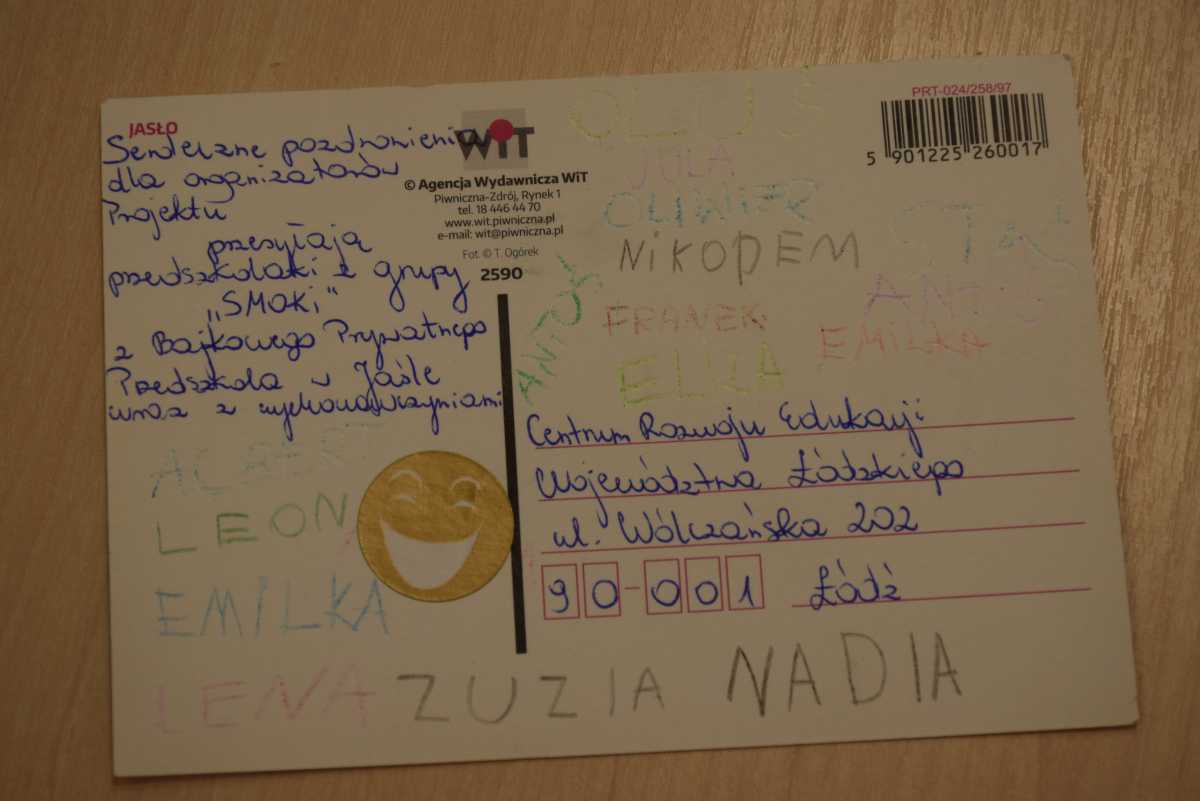 JASŁO
Serdeczne pozdrowienia
dla organizatorów
Projektu
przesyłają
przedszkolaki z grupy
„SMOKI"
z Bajkowego Prywatnego
Przedszkola w Jaśle
wraz z wychowawczyniami
WiT
© Agencja Wydawnicza WiT
Piwniczna-Zdrój, Rynek 1
tel. 18 446 44 70
www.wit.piwniczna.pl
e-mail: wit@piwniczna.pl
Fot. © T. Ogórek
2590
PRT-024/258/97
5 901225 260017
OLUŚ
JULA
OLIWIER
NIKODEM
ANTOŚ
FRANEK
EMILKA
ELIZA
ANTOŚ
Centrum Rozwoju Edukacji
Województwa Łódzkiego
ul. Wólczańska 202
90-001 Łódź
ALBERT
LEON
EMILKA
LENA ZUZIA NADIA